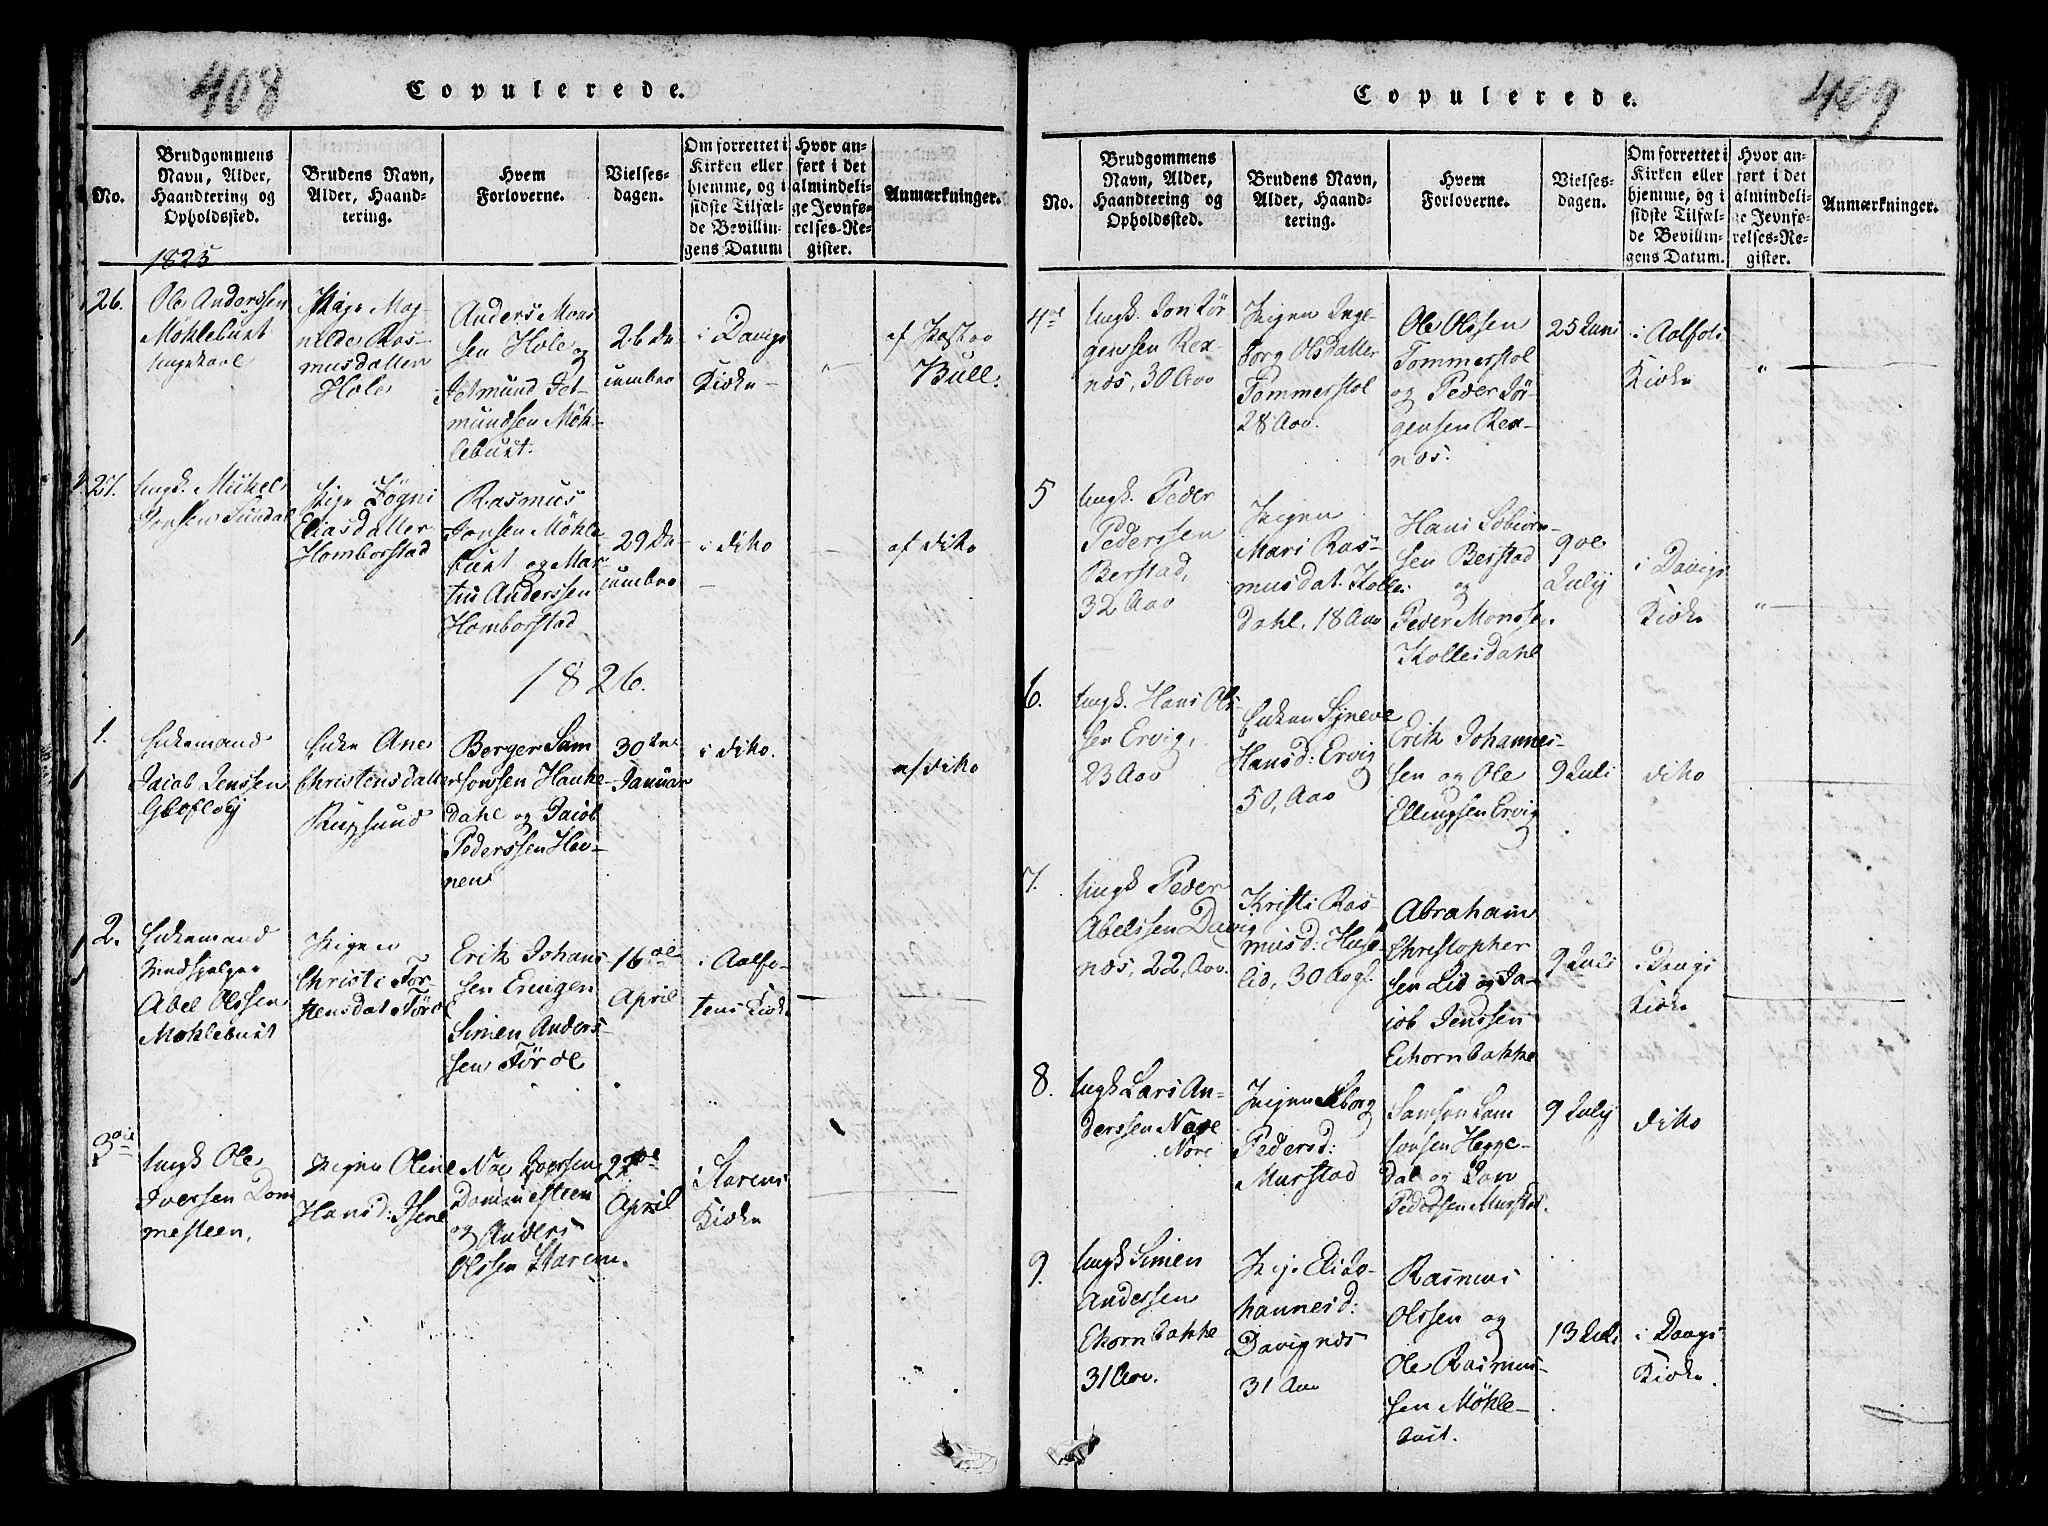 408
Copulerede.
No.
Brudgommens
Navn, Alder,
Haandtering og
Opholdssted.
Brudens Navn,
Alder, Haand-
tering.
Hvem
Forloverne.
Vielses-
dagen.
Om forrettet i
Kirken eller
hjemme, og i
sidste Tilfæl-
de Bevillin-
gens Datum
Hvor an-
ført i det
almindeli-
ge Jevnfø-
relses-Re-
gister.
Anmærkninger.
1825
26.
Ole Anderssen
Möhlebust
Ungkarl
Pige Mag-
nilde Ras-
musdatter
Hole
Anders Mons
sen Hole og
Jetmund Jet-
mundsen Möh-
lebust.
26 De-
cember
i Davigs
Kirke
af Pastor
Bull.
27.
Ungk. Mikel
Jensen Sundal
Pige Sögni
Eliasdatter
Homborstad
Rasmus
Jonsen Möhle
bust og Mar-
tin Anderssen
Homborstad
29 De-
cember
i dito
af dito
1826.
1.
Enkemand
Jacob Jenssen
Enke Ane
Christensdatter
Rugsund
Berger Sam
sonsen Hauke-
dahl og Jacob
Pederssen Hav-
nen
30te
Januar
i dito.
af dito
2.
Enkemand
Abel Olssen
Möhlebust
Pigen
Christi Tor-
stensdat Förde
Erik Johans
sen Ervigen
Simen Anders-
sen Förde
16de
April
i Aalfo-
tens Kirke
3die
Ungk Ole
Iversen Dom
mesteen,
Pigen Oline
Hansd: Isene
Noe Iversen
Dommesteen
og Anders
Olssen Starem.
April
i Starems
Kirke
409
Copulerede.
No.
Brudgommens
Navn, Alder,
Haandtering og
Opholdssted.
Brudens Navn,
Alder, Haand-
tering.
Hvem
Forloverne.
Vielses-
dagen.
Om forrettet i
Kirken eller
hjemme, og i
sidste Tilfæl-
de Bevillin-
gens Datum.
Hvor an-
ført i det
almindeli-
ge Jevnfø-
relses-Re-
gister.
Anmærkninger.
4de
Ungk. Jon Jör
genssen Rex-
nos, 30 Aar
Pigen Inge-
borg Olsdatter
Tommerstol
28 Aar.
Ole Olssen
Tommerstol
og Peder Jör-
gensen Rex-
nos.
25 Juni
i Aalfots
Kirke
5
Ungk. Peder
Pederssen
Berstad,
32 Aar
Pigen
Mari Ras-
musdat. Kolles
dahl, 18 Aar
Hans Sebiörn-
sen Berstad
og
Peder Monssen
Kollesdahl
9de
July
i Davigs
Kirke
6.
Ungk. Hans Ols
sen Ervig,
23 Aar
Enken Syneve
Hansd: Ervig
50, Aar
Erik Johannes-
sen og Ole
Ellingsen Ervig
9 Juli
dito
7.
Ungk Peder
Abelssen Davig
nos, 22, Aar.
Kristi Ras-
musd: Huse
lid, 30 Aar
Abraham
Christopher
sen Lid og Ja-
cob Jenssen
Echornbakke
9 Juli
i Davigs
Kirke
8.
Ungk Lars An-
derssen Nore
Nore
Pigen Siborg
Pedersd:
Murstad
Samson Sam
sonsen Hegge-
dal og
Pedersen Murstad.
9 July
dito
9.
Ungk Simen
Andessen
Ehornbakke
31 Aar.
Pige Eli Jo-
hannesd:
Davignos
31 Aar
Rasmus
Olssen og
Ole Rasmus-
sen Möhle-
bust.
13 Juli
i Davigs
Kirke.